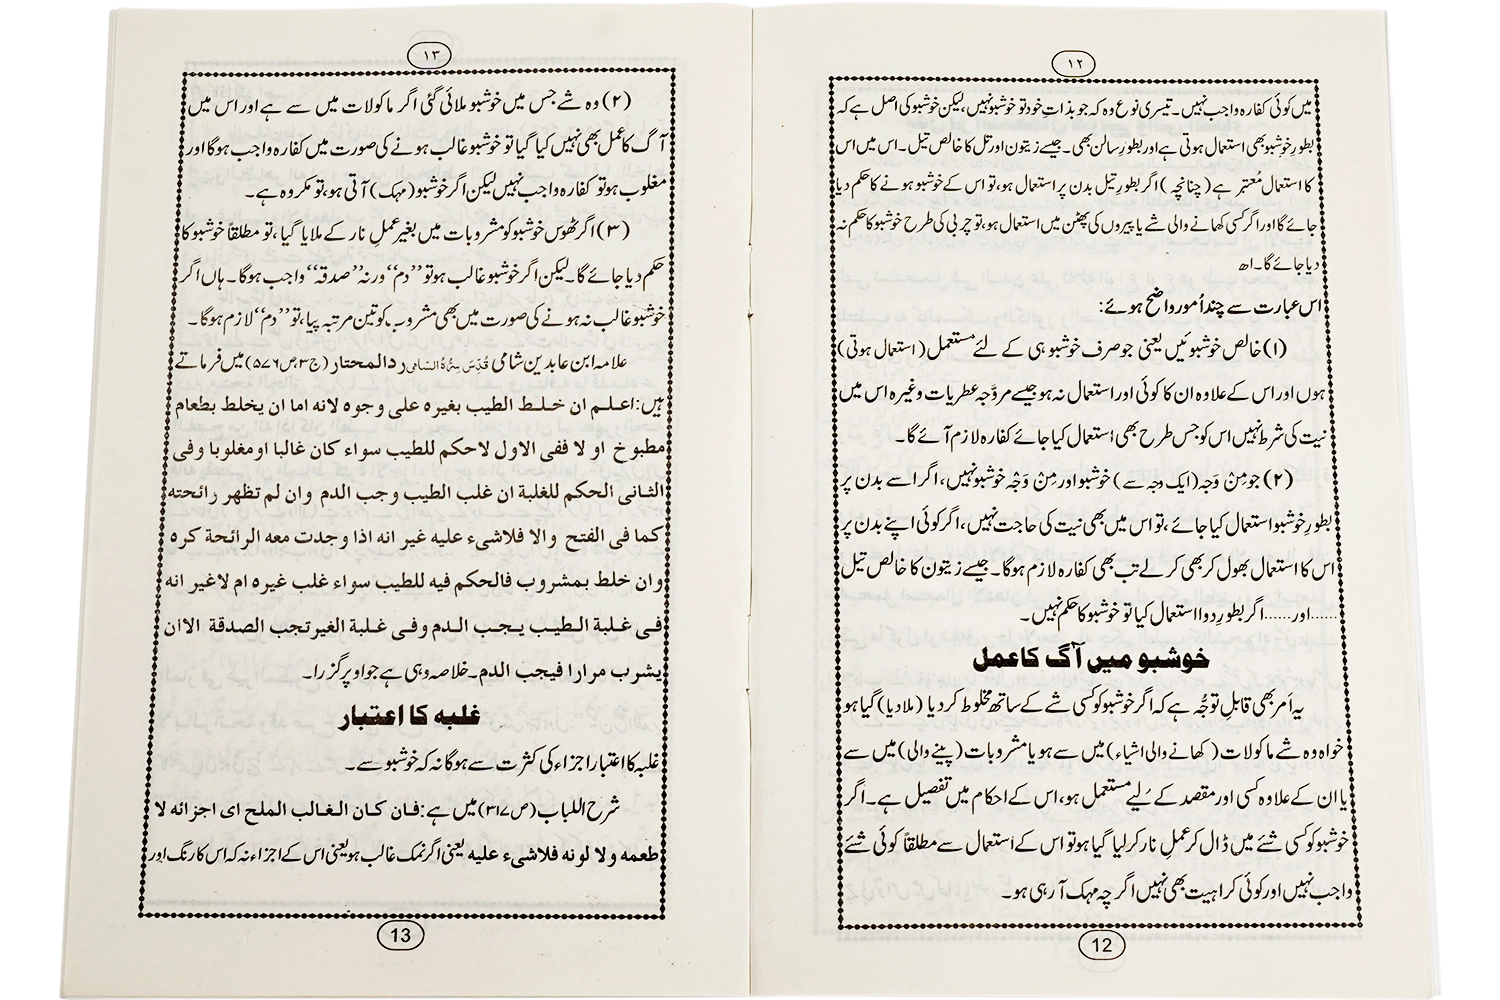 ۱۲
میں کوئی کفارہ واجب نہیں۔ تیسری نوع وہ کہ جو بذاتِ خود تو خوشبو نہیں، لیکن خوشبو کی اصل ہے کہ
بطورِ خوشبو بھی استعمال ہوتی ہے اور بطورِ سالن بھی۔ جیسے زیتون اور تل کا خالص تیل۔ اس میں اس
کا استعمال مُعتبر ہے (چنانچہ) اگر بطورِ تیل بدن پر استعمال ہو، تو اس کے خوشبو ہونے کا حکم دیا
جائے گا اور اگر کسی کھانے والی شے یا پیروں کی پھٹن میں استعمال ہو، تو چربی کی طرح خوشبو کا حکم نہ
دیا جائے گا۔ اھ
اس عبارت سے چند اُمور واضح ہوئے:
(۱) خالص خوشبوئیں یعنی جو صرف خوشبو ہی کے لئے مستعمل (استعمال ہوتی)
ہوں اور اس کے علاوہ ان کا کوئی اور استعمال نہ ہو جیسے مروَّجہ عطریات وغیرہ اس میں
نیت کی شرط نہیں اس کو جس طرح بھی اِستعمال کیا جائے کفارہ لازم آئے گا۔
(۲) جو مِنْ وَجہ (ایک وجہ سے) خوشبو اور مِنْ وَجْہ خوشبو نہیں، اگر اسے بدن پر
بطورِ خوشبو استعمال کیا جائے، تو اس میں بھی نیت کی حاجت نہیں، اگر کوئی اپنے بدن پر
اس کا استعمال بھول کر بھی کر لے تب بھی کفارہ لازم ہوگا۔ جیسے زیتون کا خالص تیل
......اور......اگر بطورِ دوا استعمال کیا تو خوشبو کا حکم نہیں۔
خوشبو میں آگ کا عمل
یہ اَمر بھی قابلِ توجُّہ ہے کہ اگر خوشبو کو کسی شے کے ساتھ مخلوط کر دیا (ملا دیا) گیا ہو
خواہ وہ شے ماکولات (کھانے والی اشیاء) میں سے ہو یا مشروبات (پینے والی) میں سے
یا ان کے علاوہ کسی اور مقصد کے لیے مستعمل ہو، اس کے احکام میں تفصیل ہے۔ اگر
خوشبو کو کسی شئے میں ڈال کر عملِ نار کر لیا گیا ہو تو اس کے استعمال سے مطلقاً کوئی شئے
واجب نہیں اور کوئی کراہیت بھی نہیں اگرچہ مہک آ رہی ہو۔
12
۱۳
(۲) وہ شے جس میں خوشبو ملائی گئی اگر ماکولات میں سے ہے اور اس میں
آگ کا عمل بھی نہیں کیا گیا تو خوشبو غالب ہونے کی صورت میں کفارہ واجب ہوگا اور
مغلوب ہو تو کفارہ واجب نہیں لیکن اگر خوشبو (مہک) آتی ہو، تو مکروہ ہے۔
(۳) اگر ٹھوس خوشبو کو مشروبات میں بغیر عملِ نار کے ملایا گیا، تو مطلقاً خوشبو کا
حکم دیا جائے گا۔ لیکن اگر خوشبو غالب ہو تو ’’دم‘‘ ورنہ ’’صدقہ‘‘ واجب ہوگا۔ ہاں اگر
خوشبو غالب نہ ہونے کی صورت میں بھی مشروب کو تین مرتبہ پیا، تو ’’دم‘‘ لازم ہوگا۔
علامہ ابن عابدین شامی قُدِّسَ سِرُّہُ السَّامی ردالمحتار (ج۳ ص۵۷۶) میں فرماتے
ہیں: اعلم ان خلط الطیب بغیرہ علی وجوہ لانه اما ان یخلط بطعام
مطبوخ او لا ففی الاول لاحکم للطیب سواء کان غالبا او مغلوبا وفی
الثانی الحکم للغلبة ان غلب الطیب وجب الدم وان لم تظهر رائحته
کما فی الفتح والا فلاشیء علیه غیر انه اذا وجدت معه الرائحة کرہ
وان خلط بمشروب فالحکم فیه للطیب سواء غلب غیرہ ام لاغیر انه
فی غلبة الطیب یجب الدم وفی غلبة الغیر تجب الصدقة الاان
یشرب مرارا فیجب الدم۔ خلاصہ وہی ہے جو اوپر گزرا۔
غلبہ کا اعتبار
غلبہ کا اعتبار اجزاء کی کثرت سے ہوگا نہ کہ خوشبو سے۔
شرح اللباب (ص۳۱۷) میں ہے: فان کان الغالب الملح ای اجزائه لا
طعمه ولا لونه فلاشیء علیه یعنی اگر نمک غالب ہو یعنی اس کے اجزاء نہ کہ اس کا رنگ اور
13